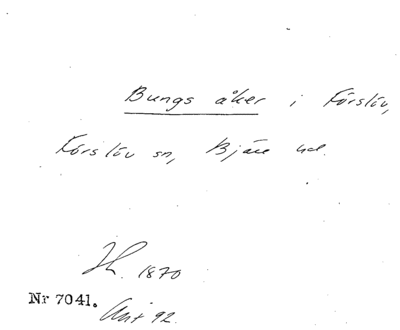 Bungs åker i Förslöv,
Förslöv sn, Bjäre hd.
1870
Nr 7041.
92.